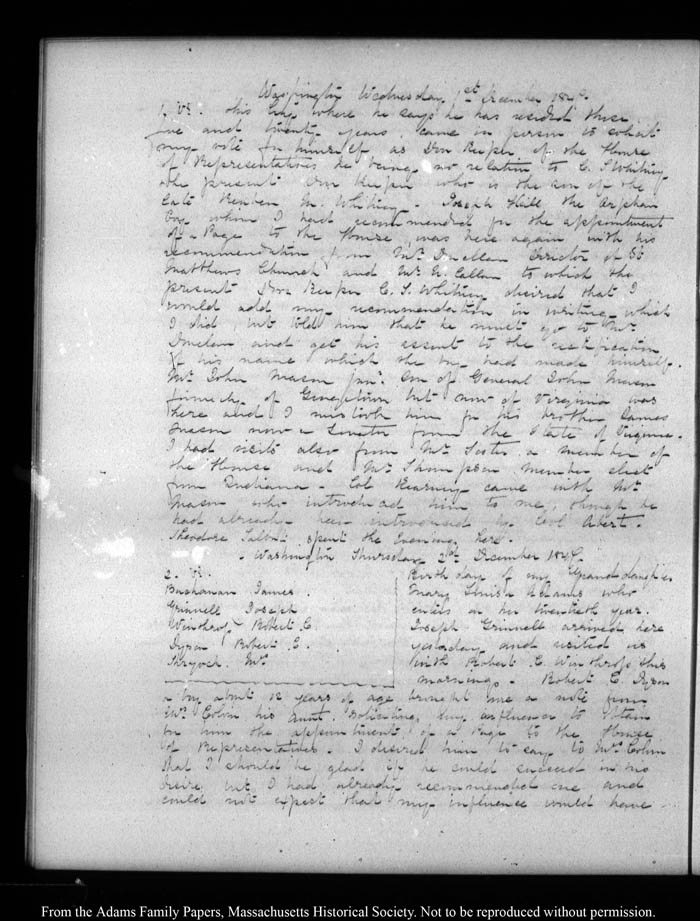 Washington Wednesday 1st December 184
1. VI. this City where he says he has resided these
five and twenty years, came in person to solicit
my vote for himself as Door Keeper of the House
of Representatives he being no relation to C. S Whitney
the present Door Keeper who is the son of the
late Reuben M. Whitney. Joseph Hill the Orphan
boy whom I had recommended for the appointment
of a Page to the House, was here again with his
recommendation from Mr. Director of St
Matthews Church and Mr. to which the
present Door Keeper C. S. Whitney desired that I
would add my recommendation in writing, which
I did, but told him that he must go to Mr.
and get his assent to the rectification
of his name which the boy had made himself.
Mr. John Mason junr. Son of General John Mason
formerly of Georgetown but now of Virginia was
here and I mistook him for his brother James
Mason now a Senator from the State of Virginia.
I had visits also from Mr. a member of
the House and Mr. Thompson member elect
from Indiana - Col Kearney came with Mr.
Mason who introduced him to me, though he
had already been introduced by Col Abert.
Theodore Talbot spent the Evening here.
Washington Thursday 2d. December 184
2. VI.
Buchanan James.
Grinnell Joseph
Winthrop Robert C.
Dyson Robert C.
Shryock Mr.
Birth day of my Granddaughter
Mary Louisa Adams who
enters on her twentieth year.
Joseph Grinnell arrived here
yesterday and visited us
with Robert C. Winthrop this
morning. Robert C. Dyson
a boy about 12 years of age brought me a note from
Mrs. Colvin his Aunt. Soliciting my influence to obtain
for him the appointment of a Page to the House
of Representatives. I desired him to say to Mrs. Colvin
that I should be glad if he could succeed in his
desire, but I had already recommended one and
could not expect that my influence would have
From the Adams Family Papers, Massachusetts Historical Society. Not to be reproduced without permission.